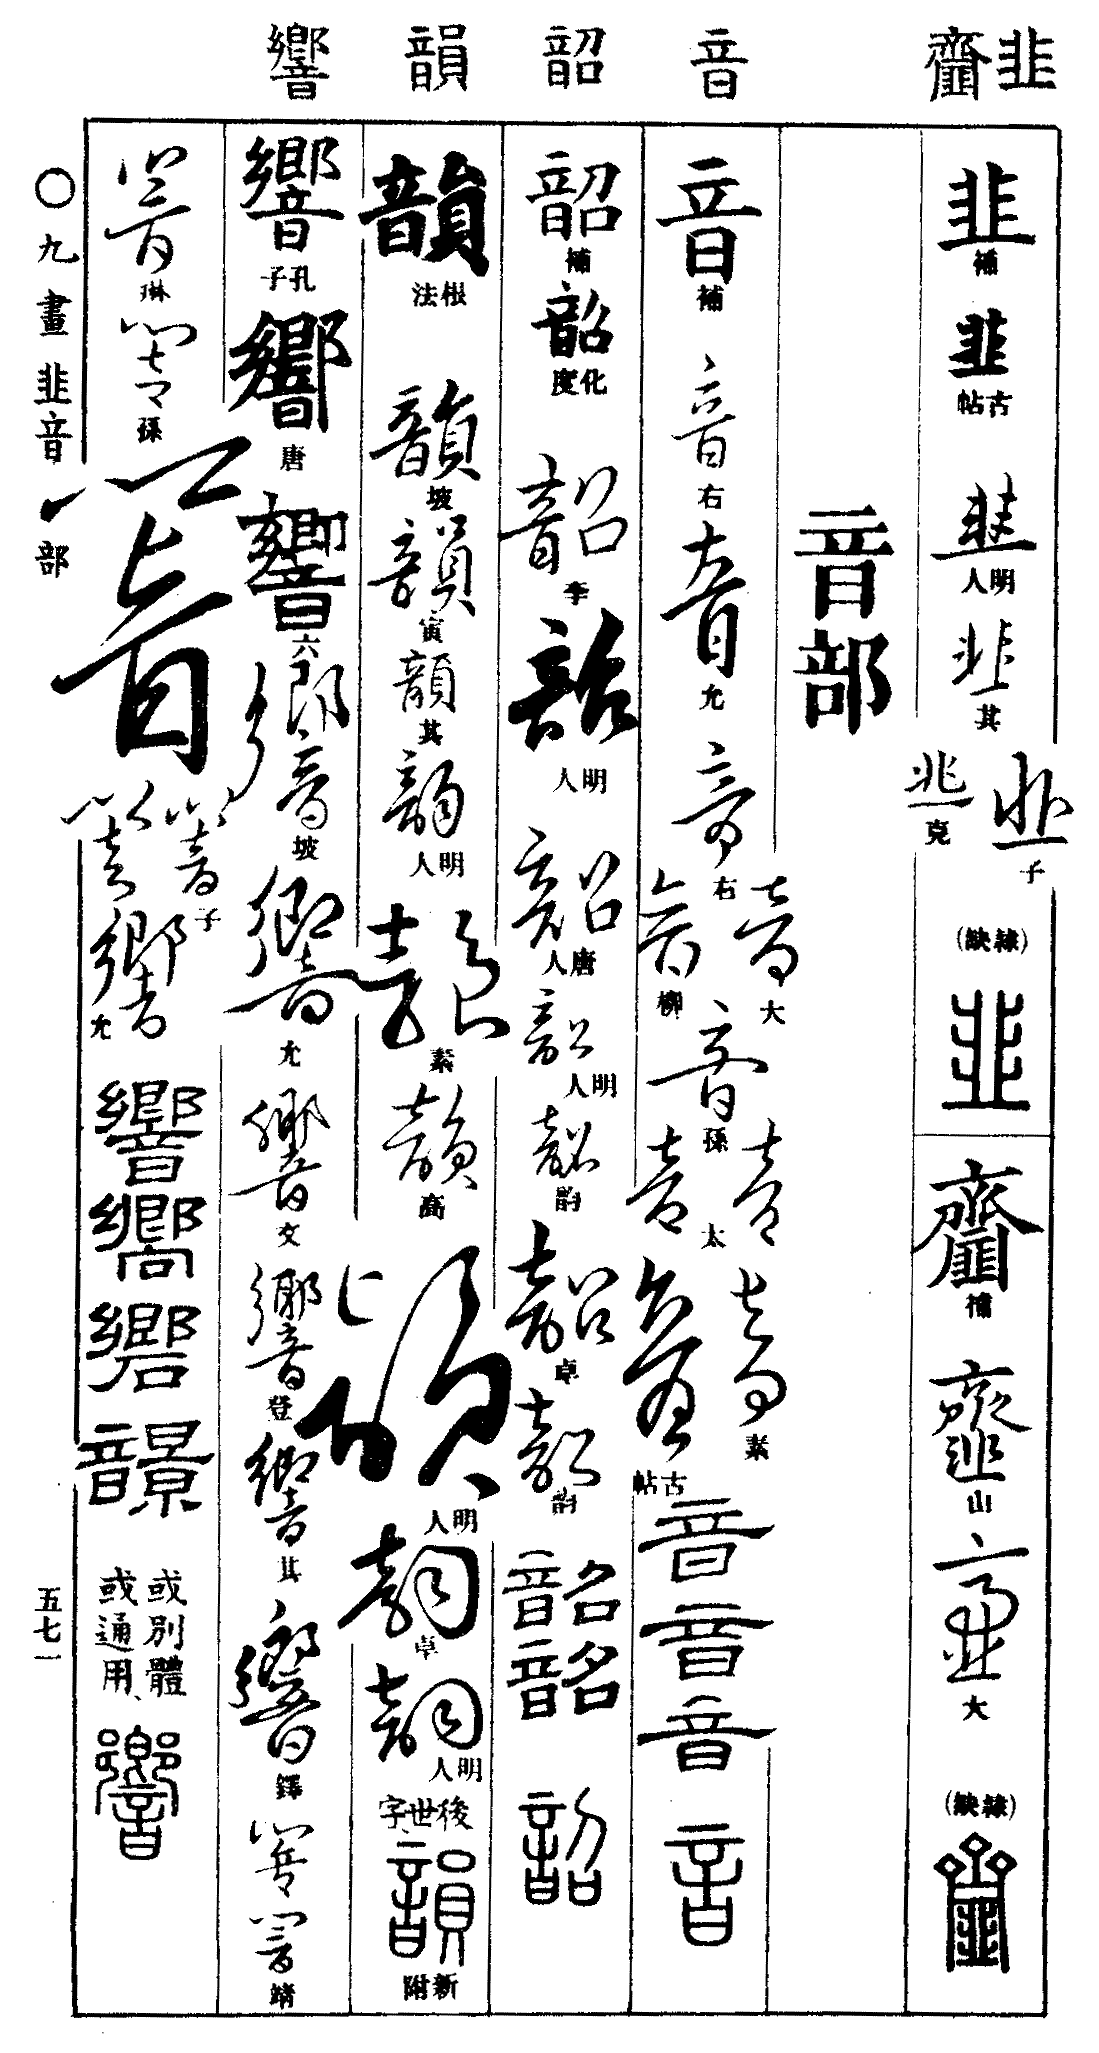 韭齏
音
韶
韻
響
韭
補
韭
古帖
韭
明人
韭
其
韭
子
韭
克
(隸缺)
韭
齏
補
齏
山
齏
大
(隸缺)
齏
音部
音
補
音
右
音
允
音
右
音
大
音
柳
音
孫
音
音
太
音
素
音
古帖
音
音
音
音
韶
補
韶
化度
韶
李
韶
明人
韶
唐人
韶
明人
韶
韵
韶
卓
韶
韵
韶
韶
韶
韻
根法
韻
坡
韻
寅
韻
其
韵
明人
韻
素
韻
高
韻
明人
韵
卓
韵
明人
後世字
韻
新附
響
孔子
響
唐
響
六
響
坡
響
允
響
文
響
登
響
其
響
鐸
響
響
靖
響
琳
響
孫
響
響
子
響
響
允
響
嚮
響
韻
或別體
或通用、
響
〇九畫 韭音部
五七一